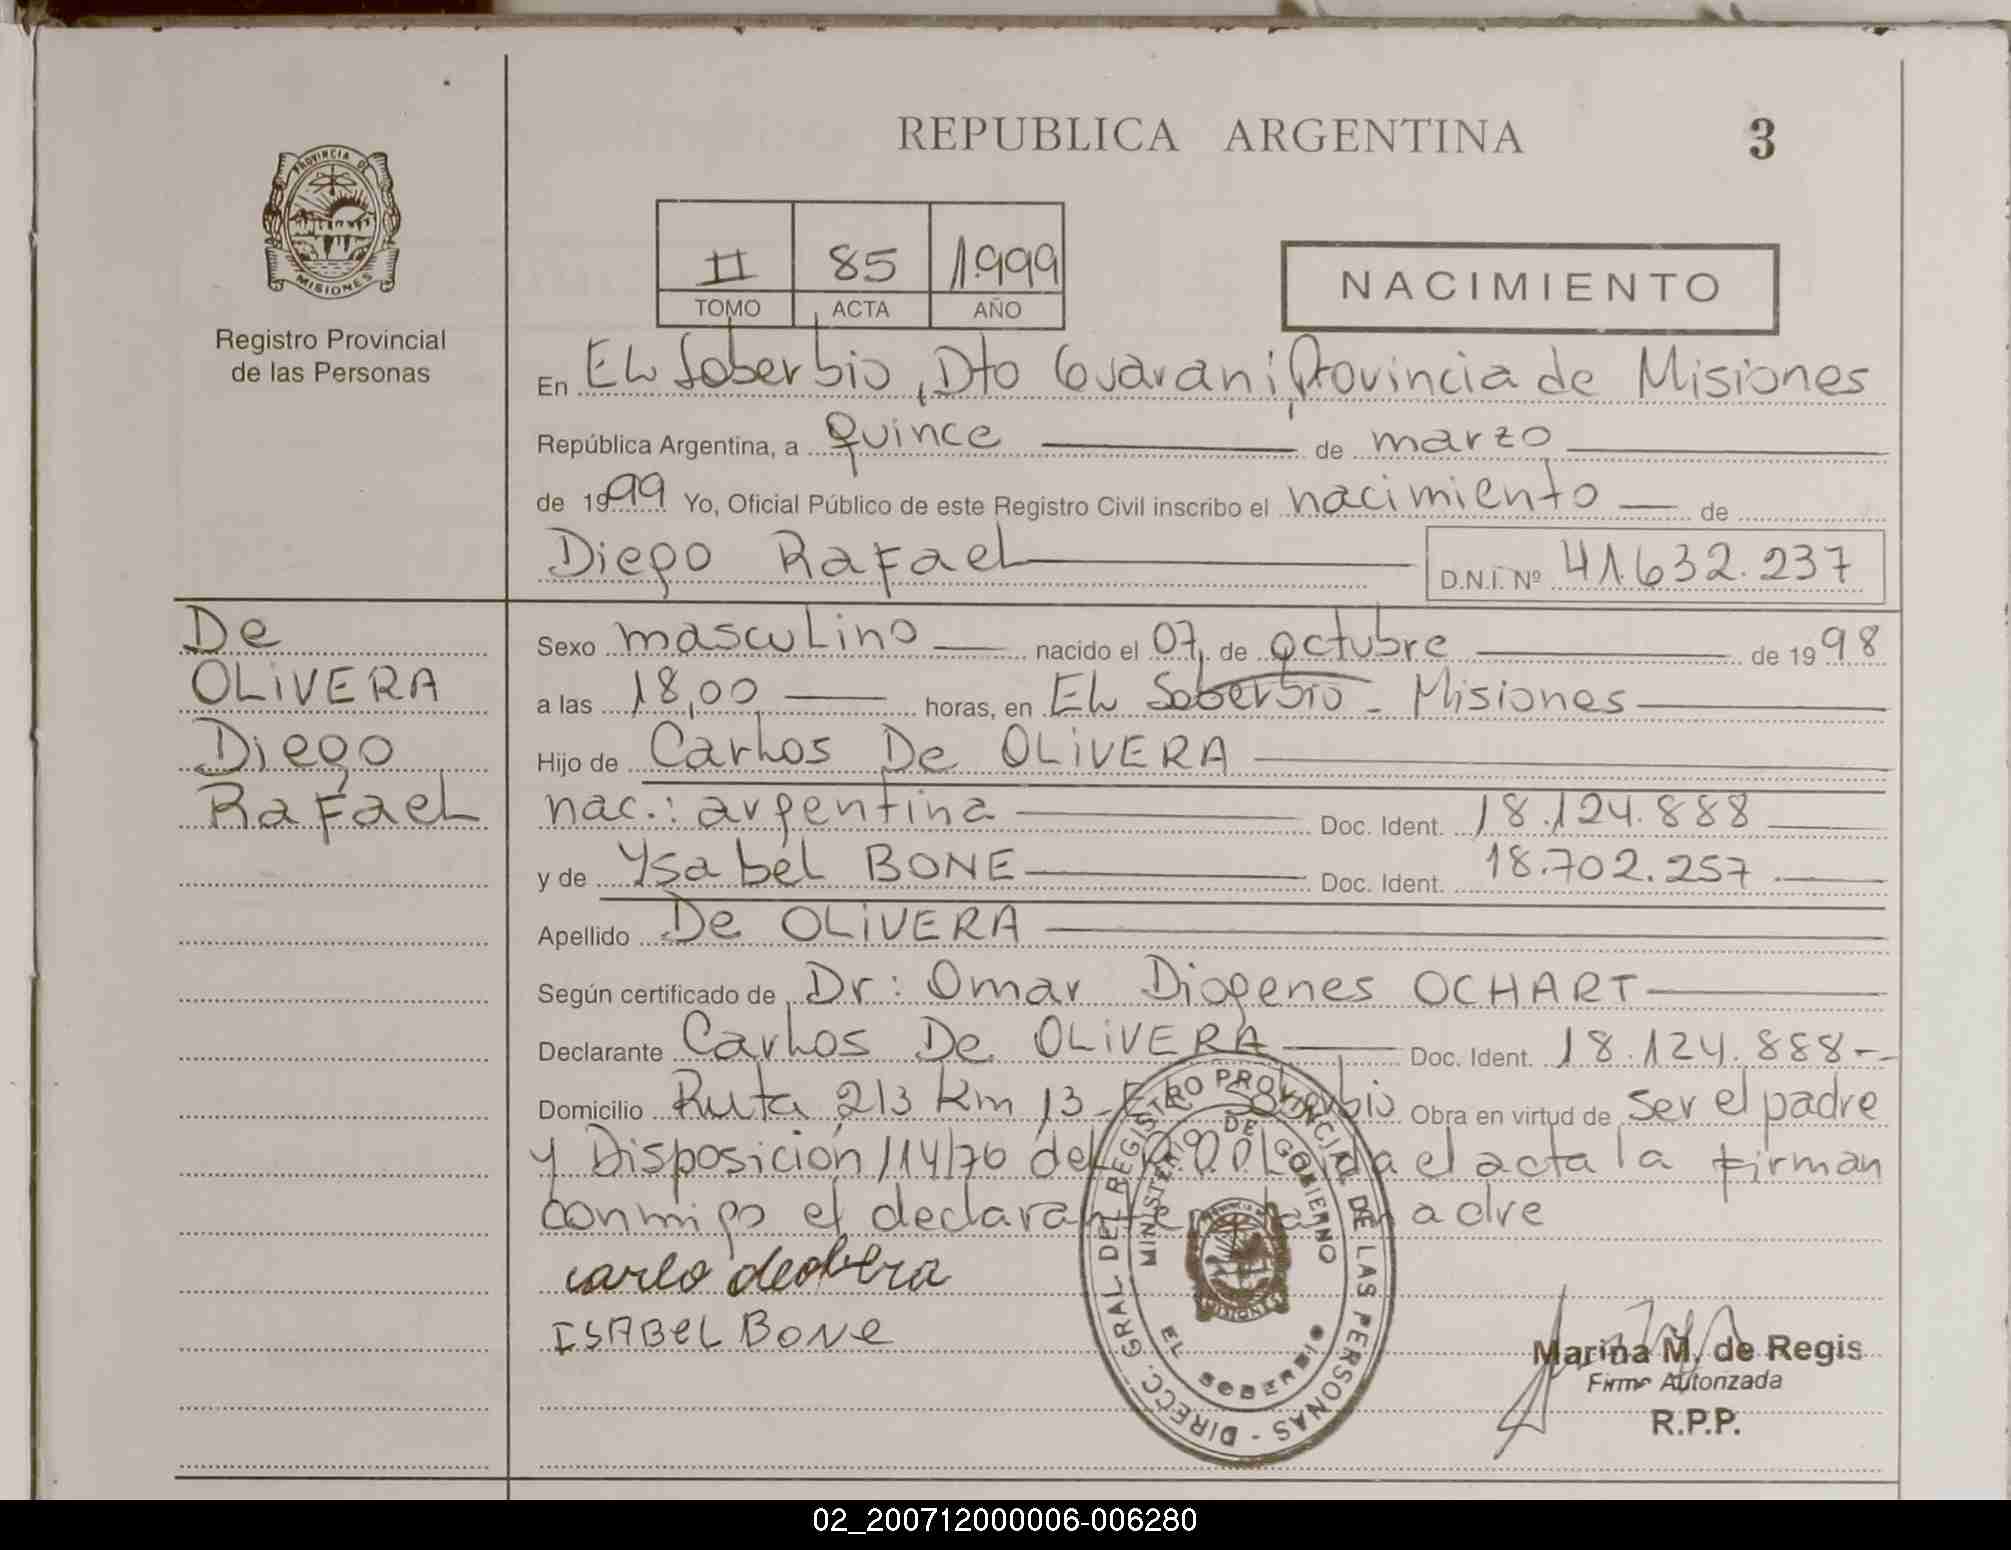 REPUBLICA ARGENTINA
3
PROVINCIA DE
MISIONES
Registro Provincial
de las Personas
II 85 1999
TOMO ACTA AÑO
NACIMIENTO
En EL Soberbio, Dto Guarani, Provincia de Misiones
República Argentina, a quince de marzo
de 1999 Yo, Oficial Público de este Registro Civil inscribo el nacimiento de
Diego Rafael D.N.I. Nº 41.632.237
De
OLiVERA
Diego
Rafael
Sexo masculino nacido el 07 de octubre de 1998
a las 18,00 horas, en EL Soberbio - Misiones
Hijo de Carlos De OLiVERA
nac.: argentina Doc. Ident. 18.124.888
y de Ysabel BONE Doc. Ident. 18.702.257
Apellido De OLiVERA
Según certificado de Dr: Omar Diogenes OCHART
Declarante Carlos De OLiVERA Doc. Ident. 18.124.888-
Domicilio Ruta 213 Km 13-EL Soberbio Obra en virtud de ser el padre
y Disposición 114/76 del el acta la firman
conmigo el declarante madre
carlo deolivera
ISABeL BONe
DIRECC. GRAL DEL REGISTRO PROVINCIAL DE LAS PERSONAS -
MINISTERIO DE GOBIERNO
EL SOBERBIO
Marina M. de Regis
Firma Autorizada
R.P.P.
02_200712000006-006280